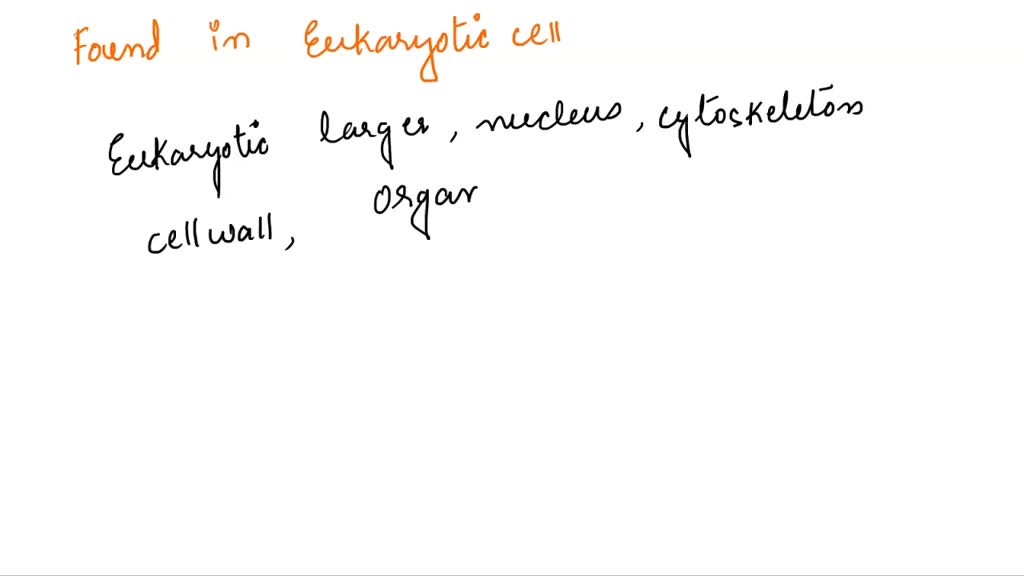 Found in Eukaryotic cell
Eukaryotic larger, nucleus, cytoskeleton
cell wall, organ